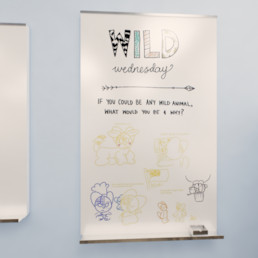 WILD
wednesday
IF YOU COULD BE ANY WILD ANIMAL,
WHAT WOULD YOU BE & WHY?